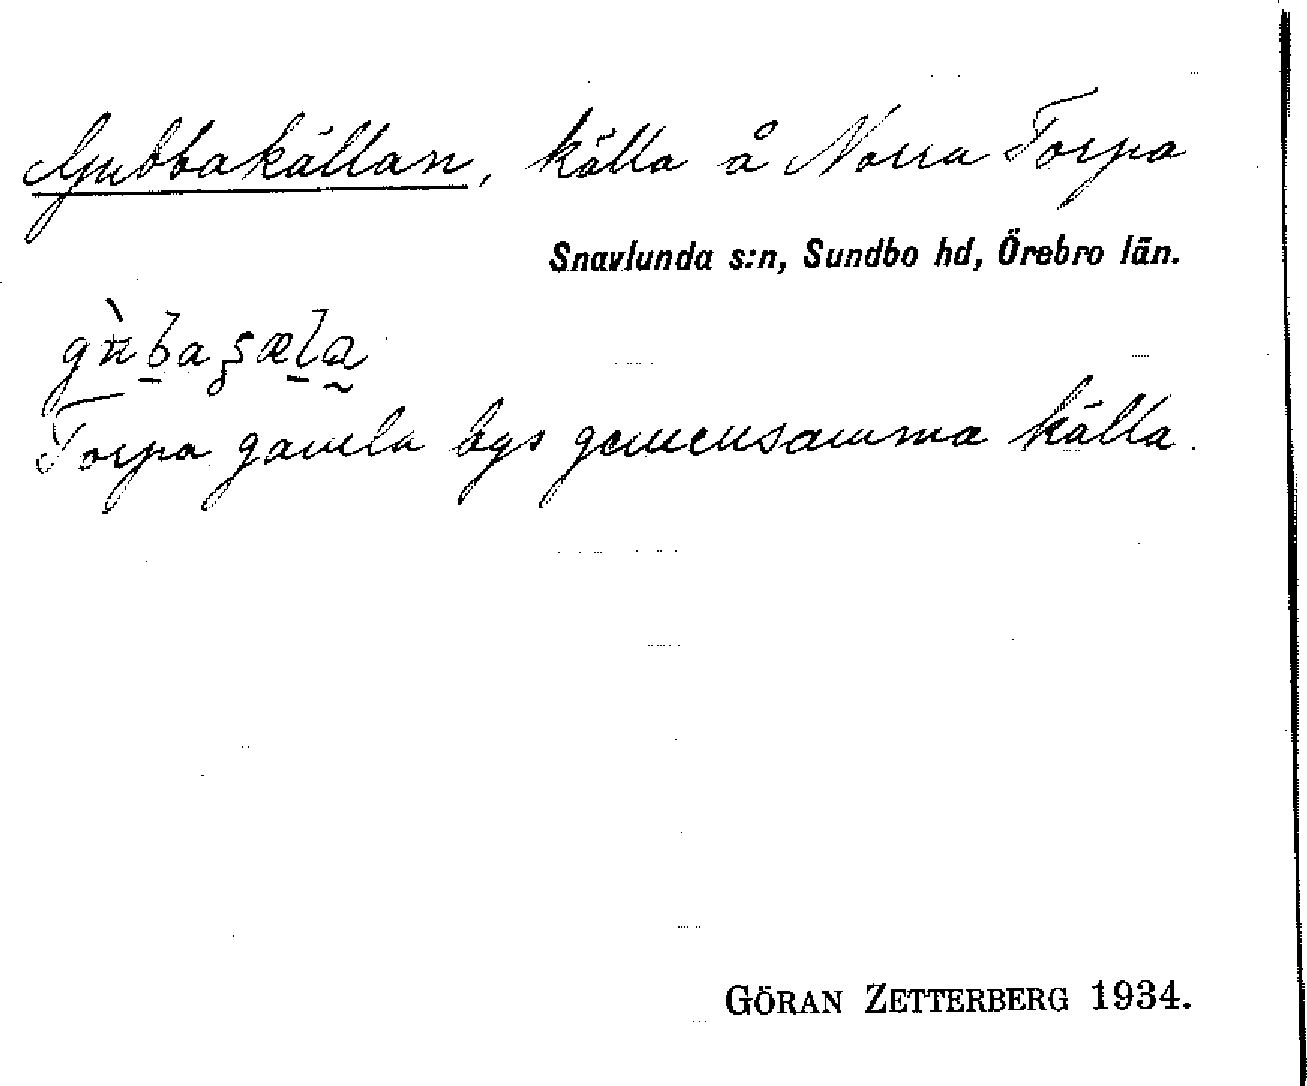 Gubbakällan, källa å Norra Torpa
Snavlunda s:n, Sundbo hd, Örebro län.
Torpa gamla bys gemensamma källa.
GÖRAN ZETTERBERG 1934.